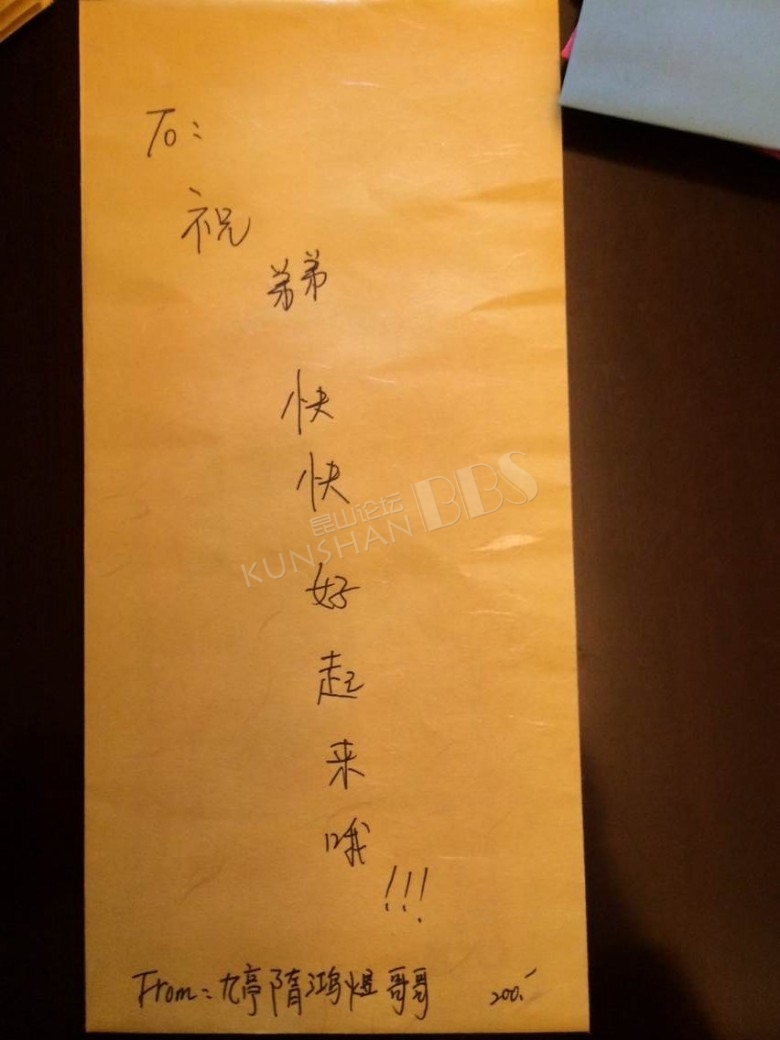 To:
祝
弟弟
快
快
好
起
来
哦
!!!
From: 九亭隋鸿煜哥哥 200.-
昆山论坛
KUNSHAN BBS